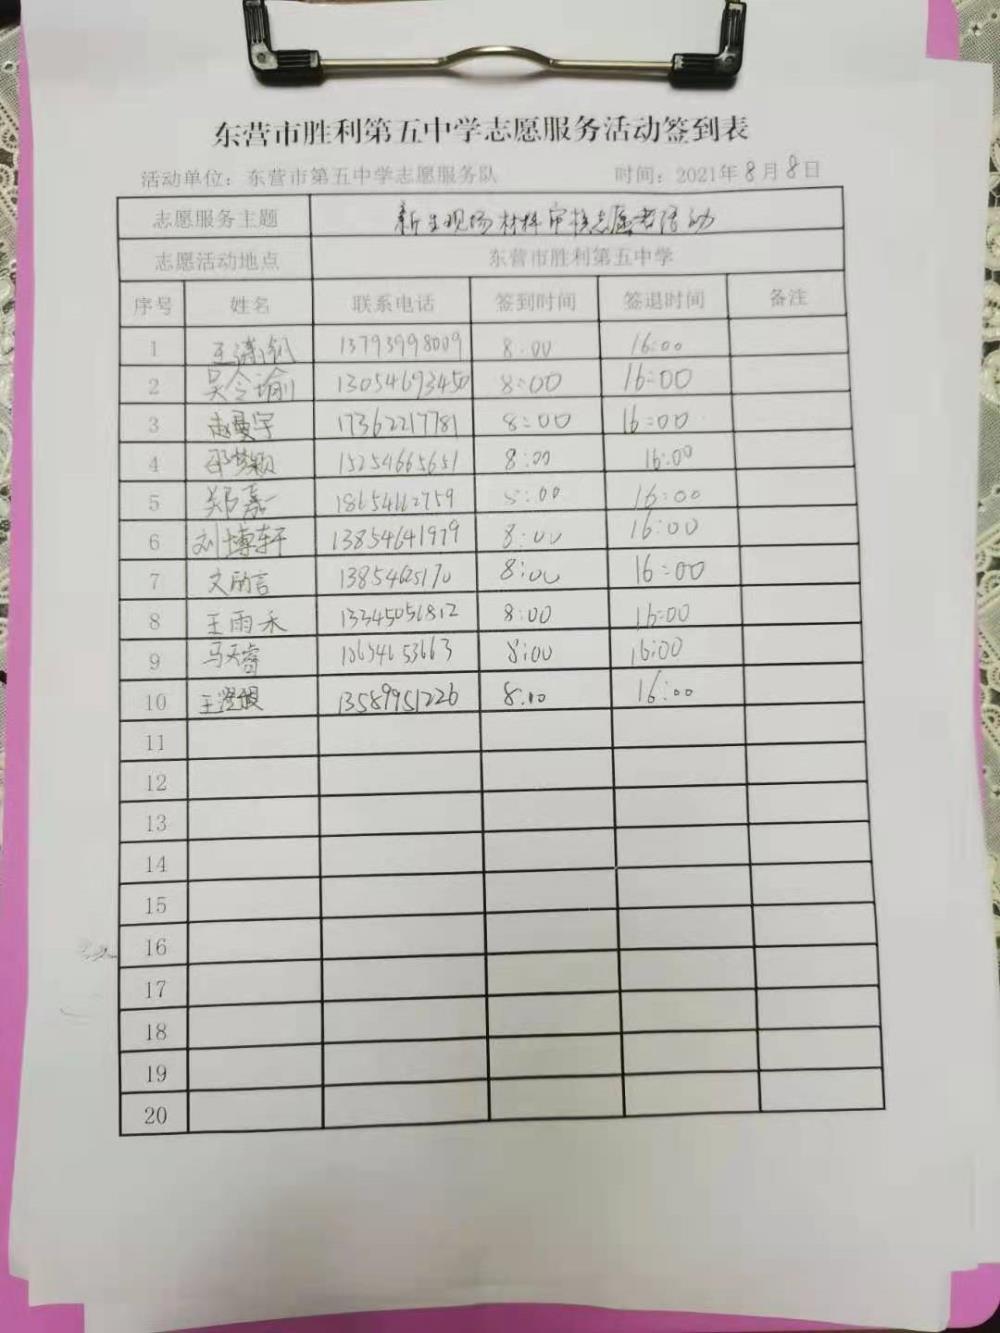 东营市胜利第五中学志愿服务活动签到表
活动单位：东营市第五中学志愿服务队 时间：2021年8月8日
志愿服务主题 新生现场材料审核志愿者活动
志愿活动地点 东营市胜利第五中学
序号 姓名 联系电话 签到时间 签退时间 备注
1 13793998009 8:00 16:00
2 吴令瑜 13054693450 8:00 16:00
3 赵曼宇 17362217781 8:00 16:00
4 邵梦颖 15254665651 8:00 16:00
5 郑嘉一 18654662759 8:00 16:00
6 刘博轩 13854641979 8:00 16:00
7 文励言 13854625170 8:00 16:00
8 王雨禾 13345056812 8:00 16:00
9 马天睿 18654653663 8:00 16:00
10 13589951226 8:00 16:00
11
12
13
14
15
16
17
18
19
20